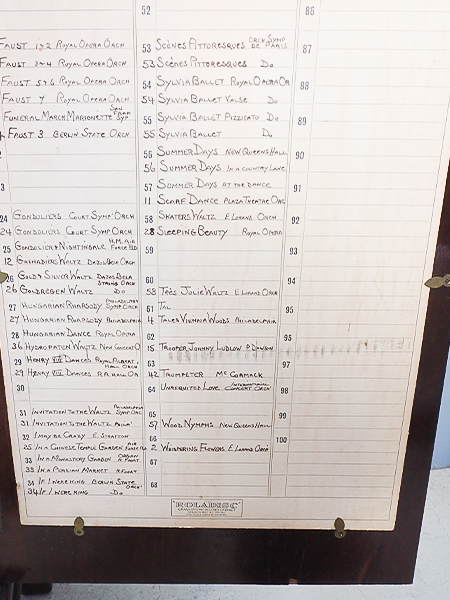 52
86
FAUST 1&2 ROYAL OPERA ORCH
53 SCÈNES PITTORESQUES ORCH SYMP DE PARIS
87
FAUST 3&4 ROYAL OPERA ORCH
53 SCÈNES PITTORESQUES Do
FAUST 5&6 ROYAL OPERA ORCH
54 SYLVIA BALLET ROYAL OPERA OR
88
FAUST 7 ROYAL OPERA ORCH
54 SYLVIA BALLET VALSE Do
FUNERAL MARCH MARIONETTE SAN FRAN SYM
55 SYLVIA BALLET PIZZICATO Do
89
FAUST 3 BERLIN STATE ORCH
55 SYLVIA BALLET Do
56 SUMMER DAYS NEW QUEENS HALL
90
56 SUMMER DAYS IN A COUNTRY LANE
57 SUMMER DAYS AT THE DANCE
91
11 SCARF DANCE PLAZA THEATRE ORC
24 GONDOLIERS COURT SYMP ORCH
58 SKATERS WALTZ ORCH
92
24 GONDOLIERS COURT SYMP ORCH
28 SLEEPING BEAUTY ROYAL OPERA
25 GONDOLIER & NIGHTINGALE H.M. AIR FORCE BD
59
93
12 GRENADIERS WALTZ DAJOS BELA ORCH
26 GOLD & SILVER WALTZ DAJOS BELA STRING ORCH
60
94
26 GOLDREGEN WALTZ Do
58 TRÈS JOLIE WALTZ ORCH
27 HUNGARIAN RHAPSODY PHILADELPHIA SYMP ORCH
61
27 HUNGARIAN RHAPSODY PHILADELPHIA
4 TALES VIENNA WOODS PHILADELPHIA
28 HUNGARIAN DANCE ROYAL OPERA
62
95
36 HYDROPATEN WALTZ NEW CONCERT O
15 TROOPER JOHNNY LUDLOW P DAWSON
29 HENRY VIII DANCES ROYAL ALBERT HALL ORCH
63
97
29 HENRY VIII DANCES R A HALL OR
42 TRUMPETER McCORMACK
30
64 UNREQUITED LOVE INTERNATIONAL CONCERT ORCH
98
31 INVITATION TO THE WALTZ PHILADELPHIA SYMP ORC
65
99
31 INVITATION TO THE WALTZ PHILA
57 WOOD NYMPHS NEW QUEENS HALL
32 I MAY BE CRAZY E STRATTON
66
100
25 IN A CHINESE TEMPLE GARDEN AIR FORCE BD
2 WHISPERING FLOWERS ORCH
33 IN A MONASTERY GARDEN ORGAN R. FOORT
67
33 IN A PERSIAN MARKET R FOORT
34 IF I WERE KING BERLIN STATE ORCH
68
34 IF I WERE KING Do
"ROLADISC"